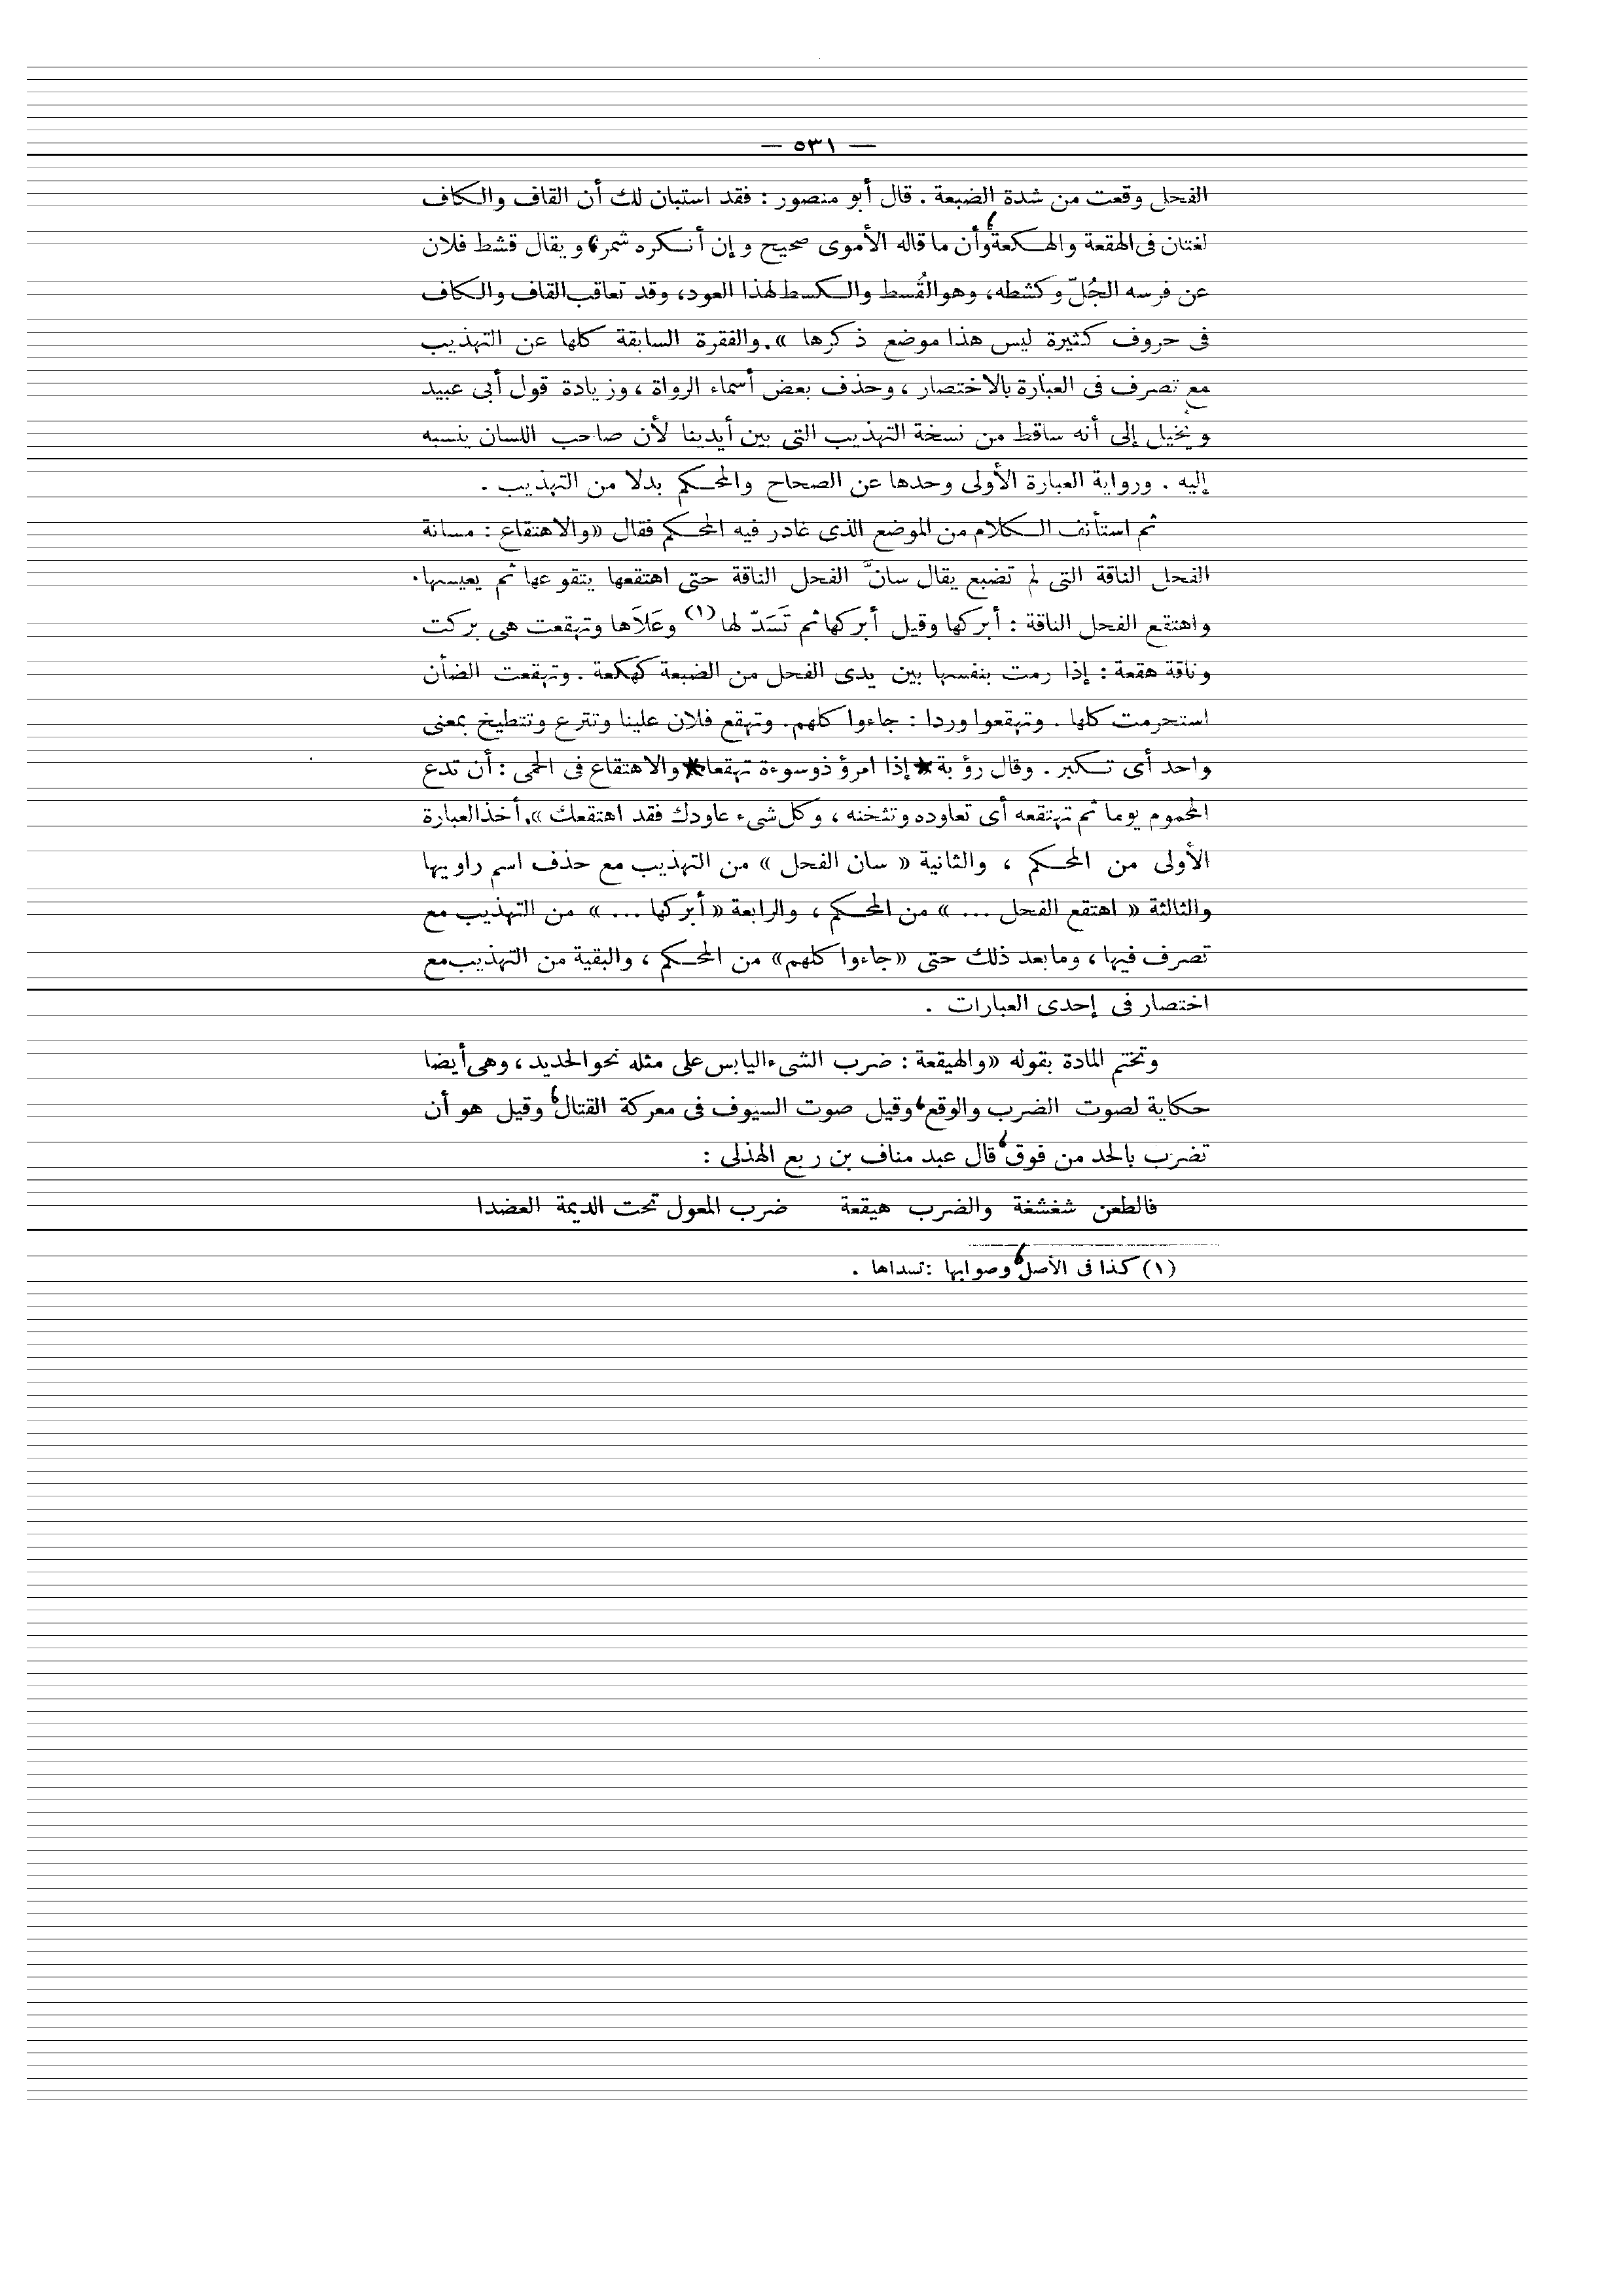 — ٥٣١ —
الفحل وقعت من شدة الضبعة . قال أبو منصور : فقد استبان لك أن القاف والكاف
لغتان فى الهقعة والهكعة، وأن ما قاله الأموى صحيح وإن أنكره شمر، ويقال قشط فلان
عن فرسه الجُلّ وكشطه، وهو القُسط والكسط لهذا العود، وقد تعاقب القاف والكاف
فى حروف كثيرة ليس هذا موضع ذكرها ». والفقرة السابقة كلها عن التهذيب
مع تصرف فى العبارة بالاختصار ، وحذف بعض أسماء الرواة ، وزيادة قول أبى عبيد
ويخيل إلى أنه ساقط من نسخة التهذيب التى بين أيدينا لأن صاحب اللسان ينسبه
إليه . ورواية العبارة الأولى وحدها عن الصحاح والمحكم بدلا من التهذيب .
ثم استأنف الكلام من الموضع الذى غادر فيه المحكم فقال «والاهتقاع : مسانة
الفحل الناقة التى لم تضبع يقال سانَّ الفحل الناقة حتى اهتقعها يتقوعها ثم يعيسها.
واهتقع الفحل الناقة : أبركها وقيل أبركها ثم تَسَدّ لها (١) وعَلاَها وتهقعت هى بركت
وناقة هقعة : إذا رمت بنفسها بين يدى الفحل من الضبعة كهكعة . وتهقعت الضأن
استحرمت كلها . وتهقعوا وردا : جاءوا كلهم. وتهقع فلان علينا وتترع وتتطيخ بمعنى
واحد أى تكبر . وقال رؤبة ★ إذا امرؤ ذو سوءة تهقعا ★ والاهتقاع فى الحمى : أن تدع
المحموم يوما ثم تهتقعه أى تعاوده وتثخنه ، وكل شىء عاودك فقد اهتقعك ». أخذ العبارة
الأولى من المحكم ، والثانية « سان الفحل » من التهذيب مع حذف اسم راويها
والثالثة « اهتقع الفحل ... » من المحكم ، والرابعة « أبركها ... » من التهذيب مع
تصرف فيها ، وما بعد ذلك حتى «جاءوا كلهم» من المحكم ، والبقية من التهذيب مع
اختصار فى إحدى العبارات .
وتختم المادة بقوله «والهيقعة : ضرب الشىء اليابس على مثله نحو الحديد ، وهى أيضا
حكاية لصوت الضرب والوقع، وقيل صوت السيوف فى معركة القتال، وقيل هو أن
تضرب بالحد من فوق، قال عبد مناف بن ربع الهذلى :
فالطعن شغشغة والضرب هيقعة ضرب المعول تحت الديمة العضدا
(١) كذا فى الأصل، وصوابها : تسداها .